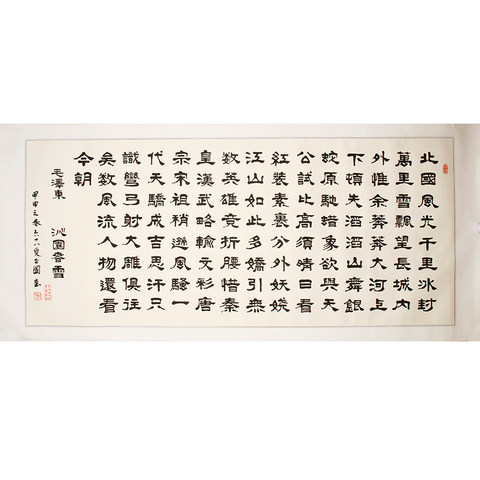 北國風光千里冰封
萬里雪飄望長城內
外惟余莽莽大河上
下頓失滔滔山舞銀
蛇原馳蜡象欲與天
公試比高須晴日看
紅装素裹分外妖娆
江山如此多嬌引無
数英雄竞折腰惜秦
皇漢武略輸文彩唐
宗宋祖稍遜風騷一
代天驕成吉思汗只
識彎弓射大雕俱往
矣数風流人物還看
今朝
毛澤東 沁園春雪
甲申之春六十八叟 國書